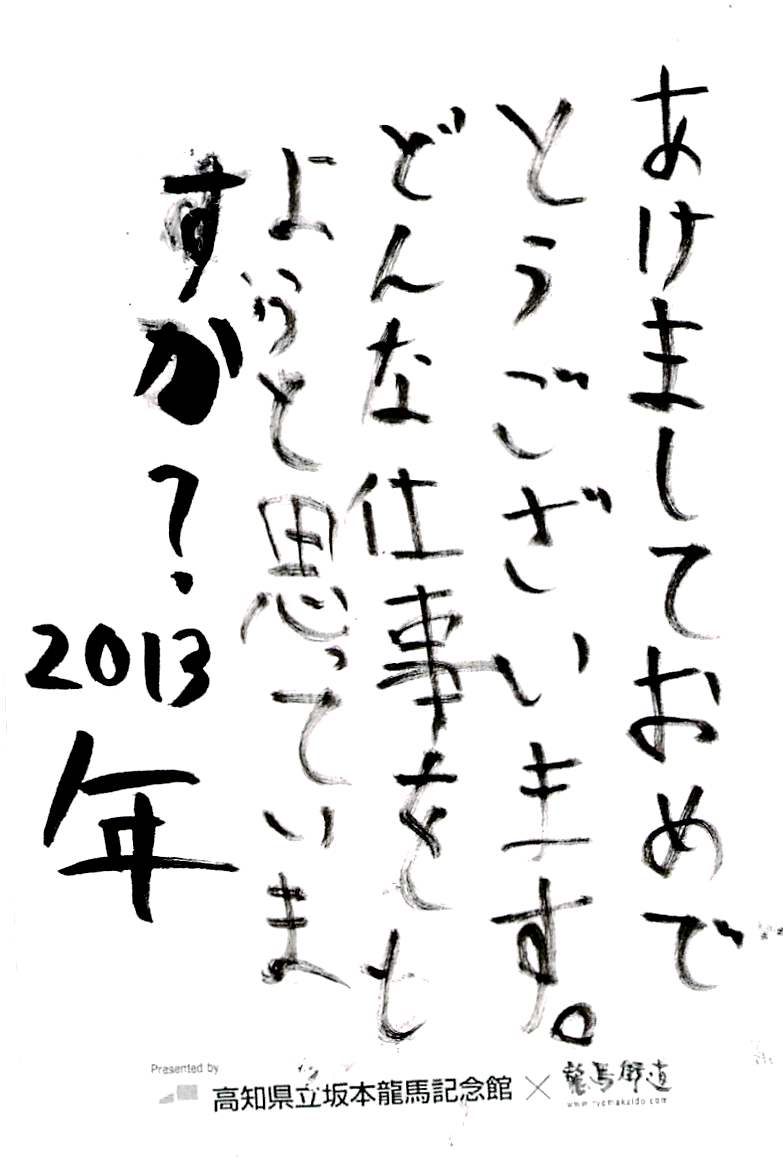 あけましておめで
とうございます。
どんな仕事をも
ようと思っていま
すか？
2013年
Presented by
高知県立坂本龍馬記念館×龍馬街道
www.ryomakaido.com